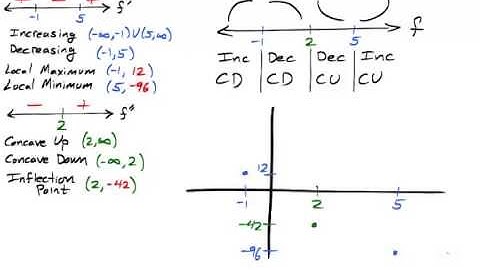 + - + f'
-1 5
Increasing (-∞,-1)∪(5,∞)
Decreasing (-1,5)
Local Maximum (-1, 12)
Local Minimum (5, -96)
- + f"
2
Concave Up (2,∞)
Concave Down (-∞,2)
Inflection Point (2,-42)
f
-1 2 5
Inc Dec Dec Inc
CD CD CU CU
12
-1 2 5
-42
-96